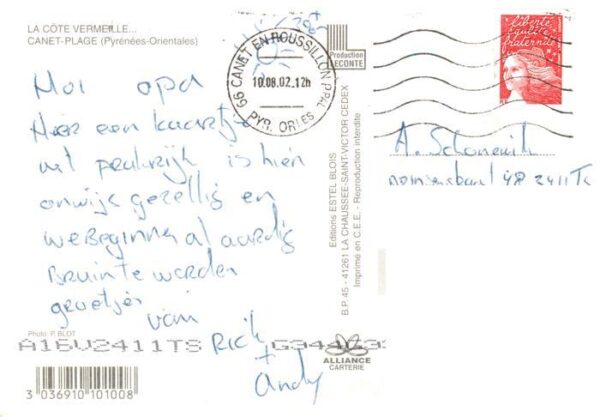 LA CÔTE VERMEILLE...
CANET-PLAGE (Pyrénées-Orientales)
Hoi opa
Hier een kaartje
uit frankrijk is hier
onwijs gezellig en
we Beginnen al aardig
Bruin te worden
groetjes
van
RICK
+
Andy
Photo: P. BLOT
A16V2411TS
3 036910 101008
66 CANET EN ROUSSILLON PPAL
10.08.02.12h
PYR. ORIES
Production
LECONTE
Editions ESTEL BLOIS
B.P. 45 - 41261 LA CHAUSSEE-SAINT-VICTOR CEDEX
Imprimé en C.E.E. - Reproduction interdite
ALLIANCE
CARTERIE
liberté
égalité
fraternité
A.
48 2411 TS